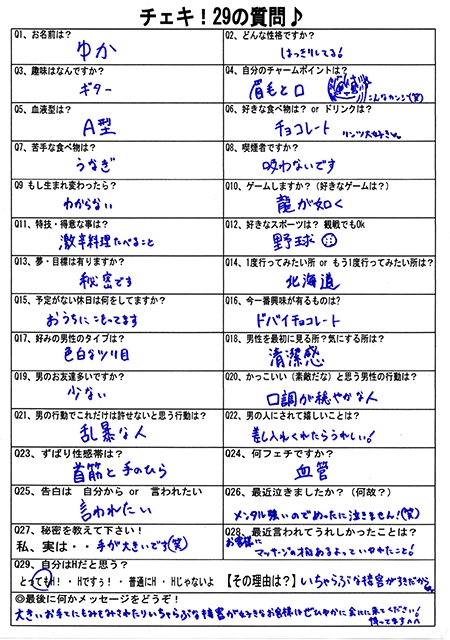 チェキ！29の質問♪
Q1、お名前は？
ゆか
Q2、どんな性格ですか？
はっきりしてる！
Q3、趣味はなんですか？
ギター
Q4、自分のチャームポイントは？
眉毛と口
こんなカンジ(笑)
Q5、血液型は？
A型
Q6、好きな食べ物は？ or ドリンクは？
チョコレート リンツ大好き
Q7、苦手な食べ物は？
うなぎ
Q8、喫煙者ですか？
吸わないです
Q9 もし生まれ変わったら？
わからない
Q10、ゲームしますか？（好きなゲームは？）
龍が如く
Q11、特技・得意な事は？
激辛料理たべること
Q12、好きなスポーツは？ 観戦でもOk
野球
Q13、夢・目標は有りますか？
秘密です
Q14、1度行ってみたい所 or もう1度行ってみたい所は？
北海道
Q15、予定がない休日は何をしてますか？
おうちにこもってます
Q16、今一番興味が有るものは？
ドバイチョコレート
Q17、好みの男性のタイプは？
色白なツリ目
Q18、男性を最初に見る所？気にする所は？
清潔感
Q19、男のお友達多いですか？
少ない
Q20、かっこいい（素敵だな）と思う男性の行動は？
口調が穏やかな人
Q21、男の行動でこれだけは許せないと思う行動は？
乱暴な人
Q22、男の人にされて嬉しいことは？
差し入れくれたらうれしい！
Q23、ずばり性感帯は？
首筋と手のひら
Q24、何フェチですか？
血管
Q25、告白は 自分から or 言われたい
言われたい
Q26、最近泣きましたか？（何故？）
メンタル強いのでめったに泣きません！(笑)
Q27、秘密を教えて下さい！
私、実は・・手が大きいです(笑)
Q28、最近言われてうれしかったことは？
お客様に
マッサージの才能あるよっていわれたこと！
Q29、自分はHだと思う？
とってもH！・Hですぅ！・普通にH・Hじゃないよ 【その理由は？】いちゃらぶな接客がすきだから
◎最後に何かメッセージをどうぞ！
大きいお手てにもみもみされたりいちゃらぶな接客が好きなお客様はぜひゆかに会いに来てください！
待ってます^^